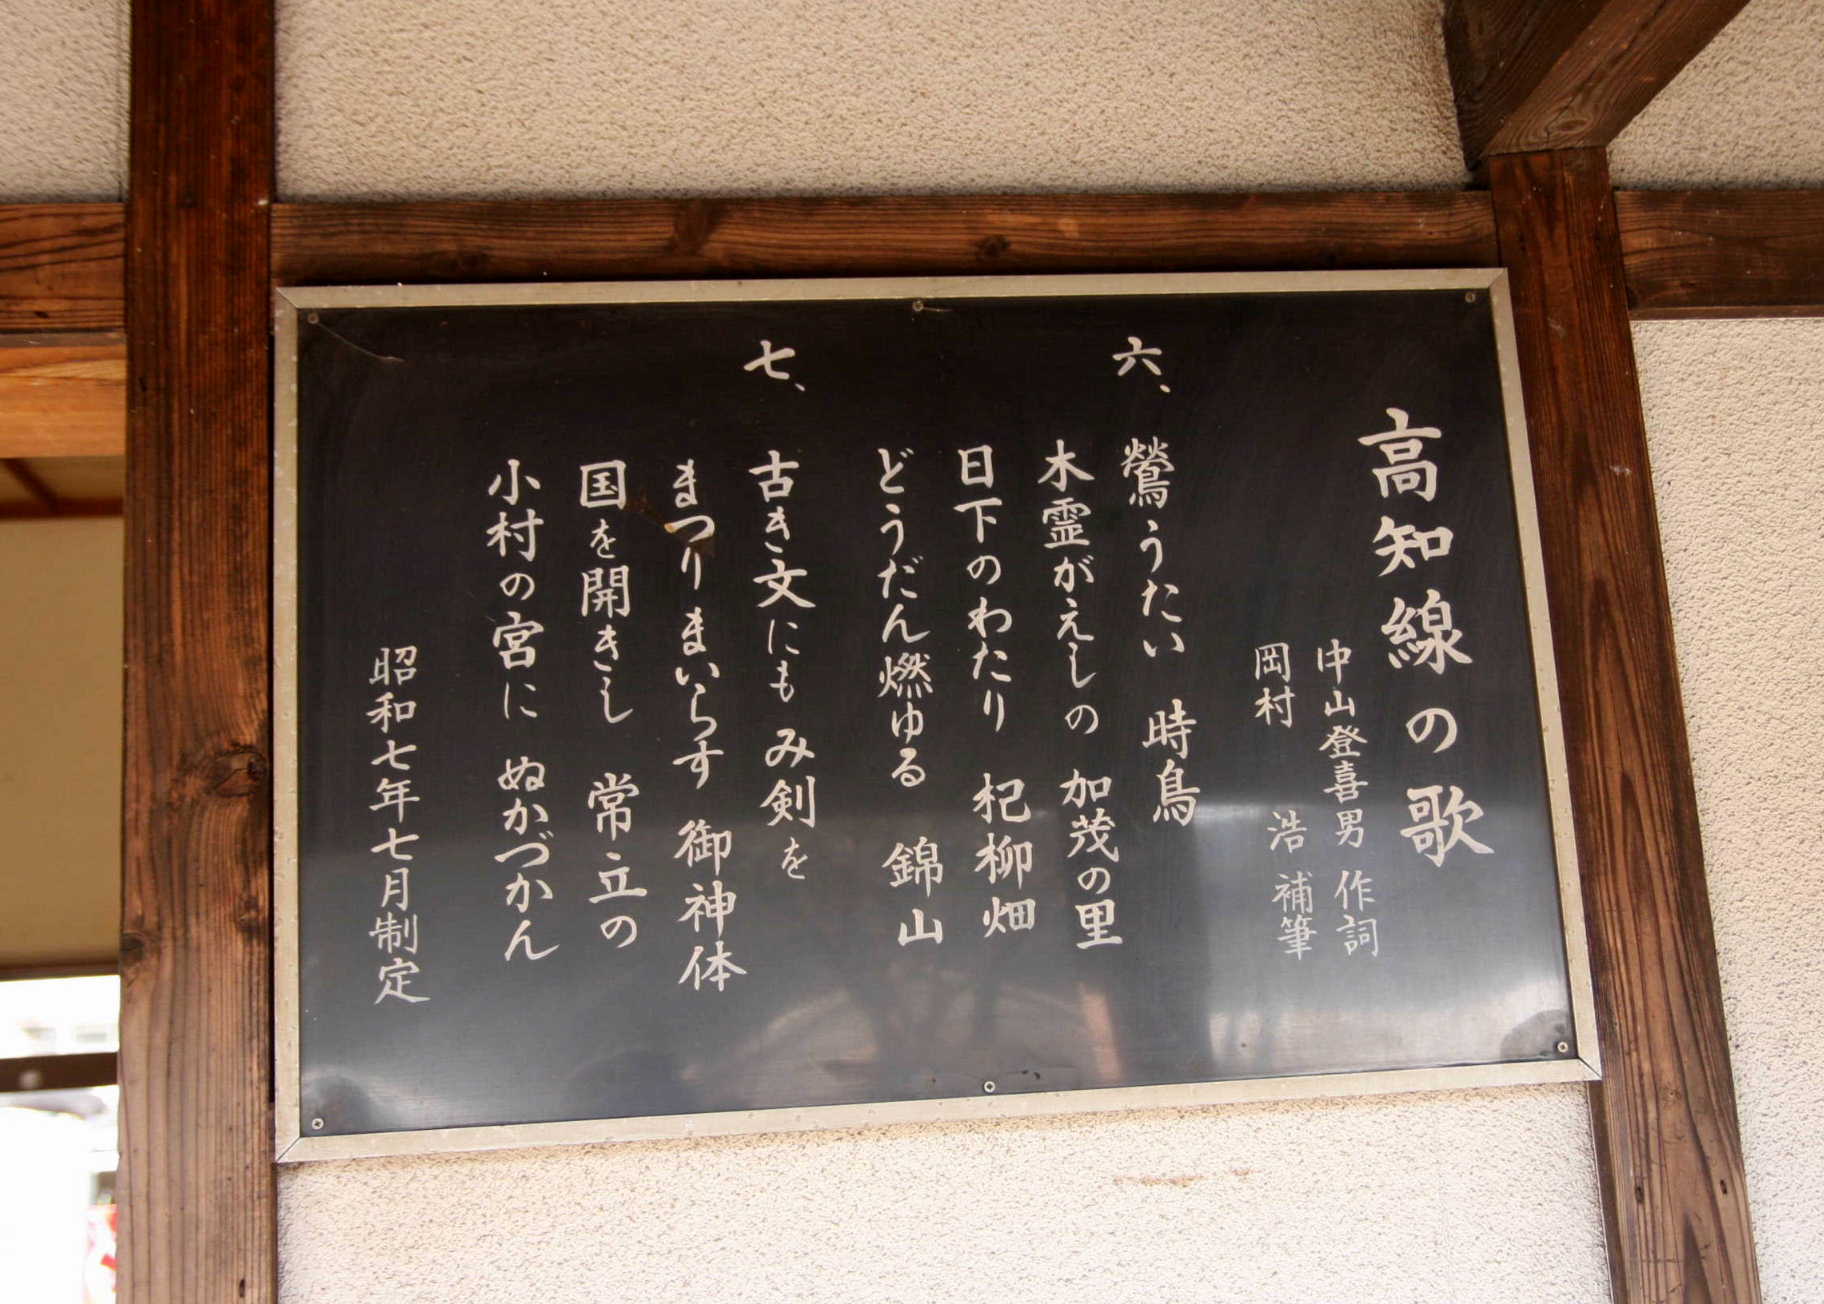 高知線の歌
中山登喜男 作詞
岡村 浩 補筆
六、
鶯うたい 時鳥
木霊がえしの 加茂の里
日下のわたり 杞柳畑
どうだん燃ゆる 錦山
七、
古き文にも み剣を
まつりまいらす 御神体
国を開きし 常立の
小村の宮に ぬかづかん
昭和七年七月制定